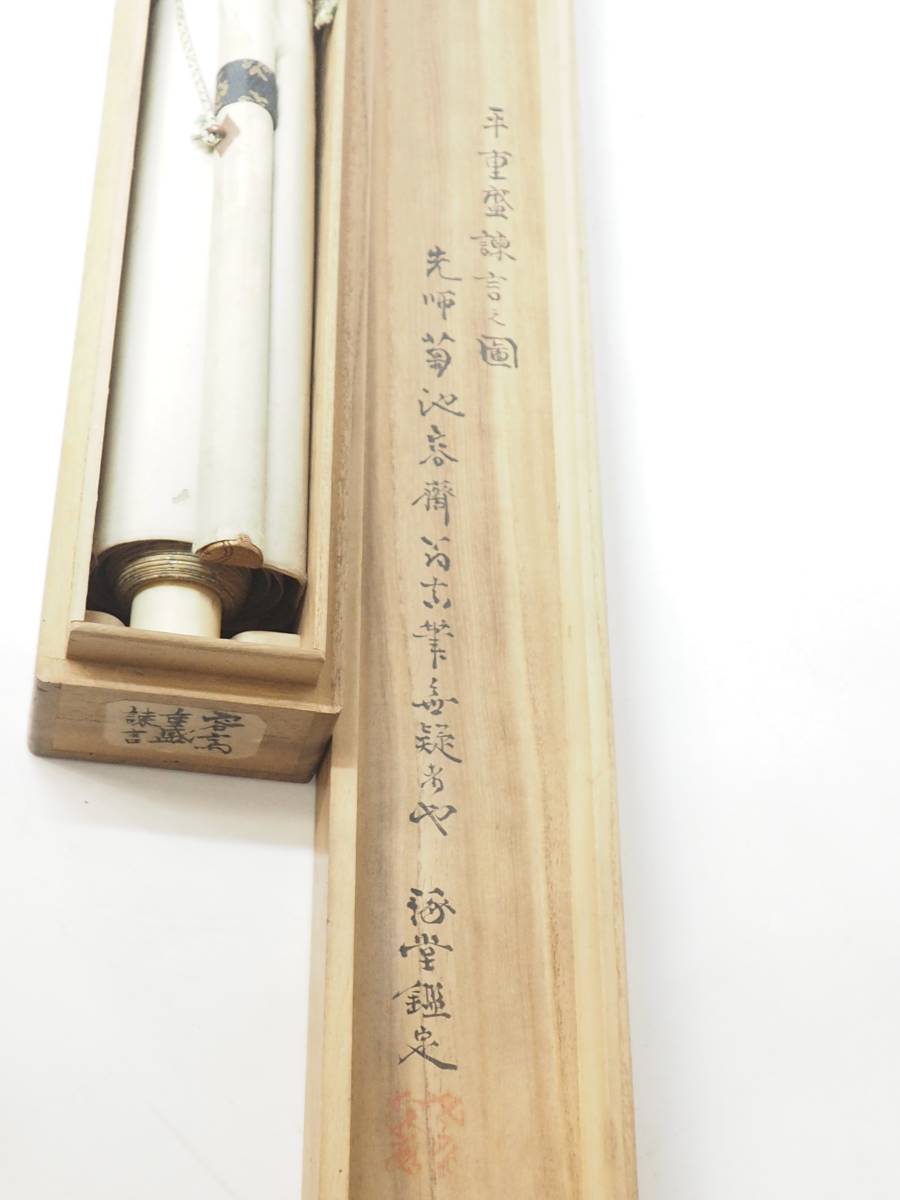 平重盛諌言之圖
先師菊池容齋翁真筆無疑者也
琢堂鑑定
容斎
重盛
諌言